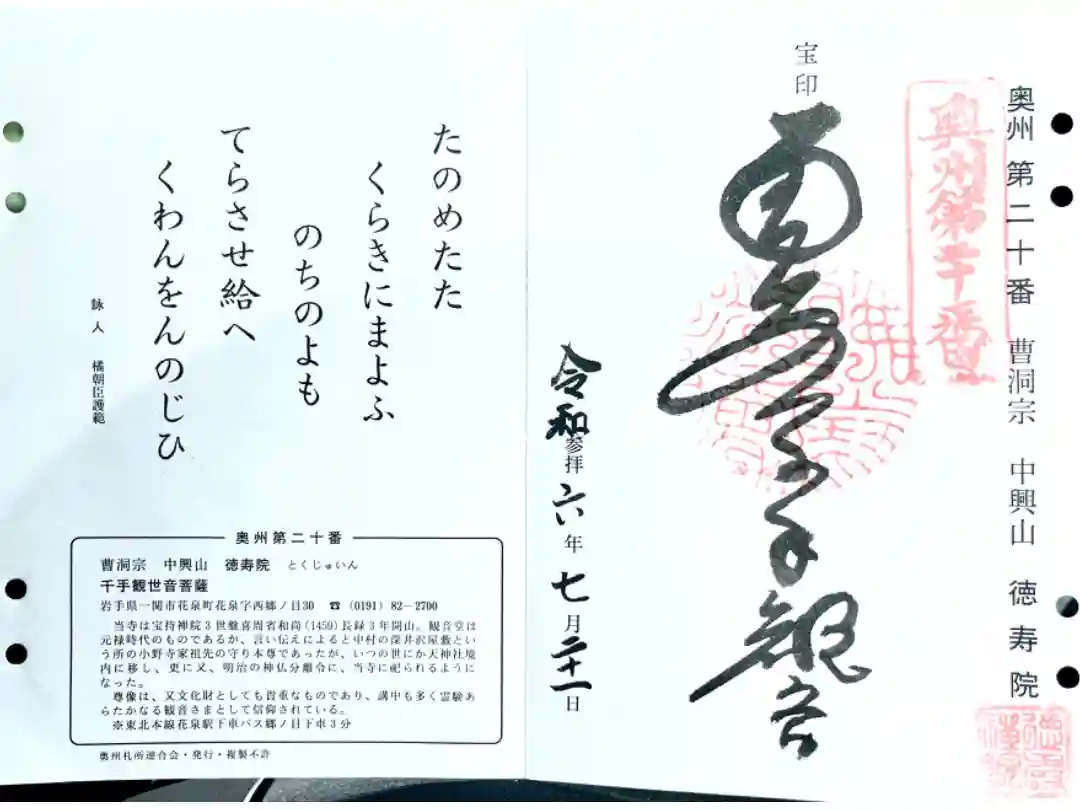 奥州第二十番 曹洞宗 中興山 徳寿院
奥州第二十番
宝印
千手観音
令和参拝六年七月二十一日
たのめたた
くらきにまよふ
のちのよも
てらさせ給へ
くわんをんのじひ
詠人 橘朝臣護範
奥州第二十番
曹洞宗 中興山 徳寿院 とくじゅいん
千手観世音菩薩
岩手県一関市花泉町花泉字西郷ノ目30 ☎ (0191) 82-2700
当寺は宝持禅院3世盤喜周省和尚(1459)長録3年開山。観音堂は
元禄時代のものであるが、言い伝えによると中村の深井沢屋敷とい
う所の小野寺家祖先の守り本尊であったが、いつの世にか天神社境
内に移し、更に又、明治の神仏分離令に、当寺に祀られるように
なった。
尊像は、又文化財としても貴重なものであり、講中も多く霊験あ
らたかなる観音さまとして信仰されている。
※東北本線花泉駅下車バス郷ノ目下車3分
奥州札所連合会・発行・複製不許